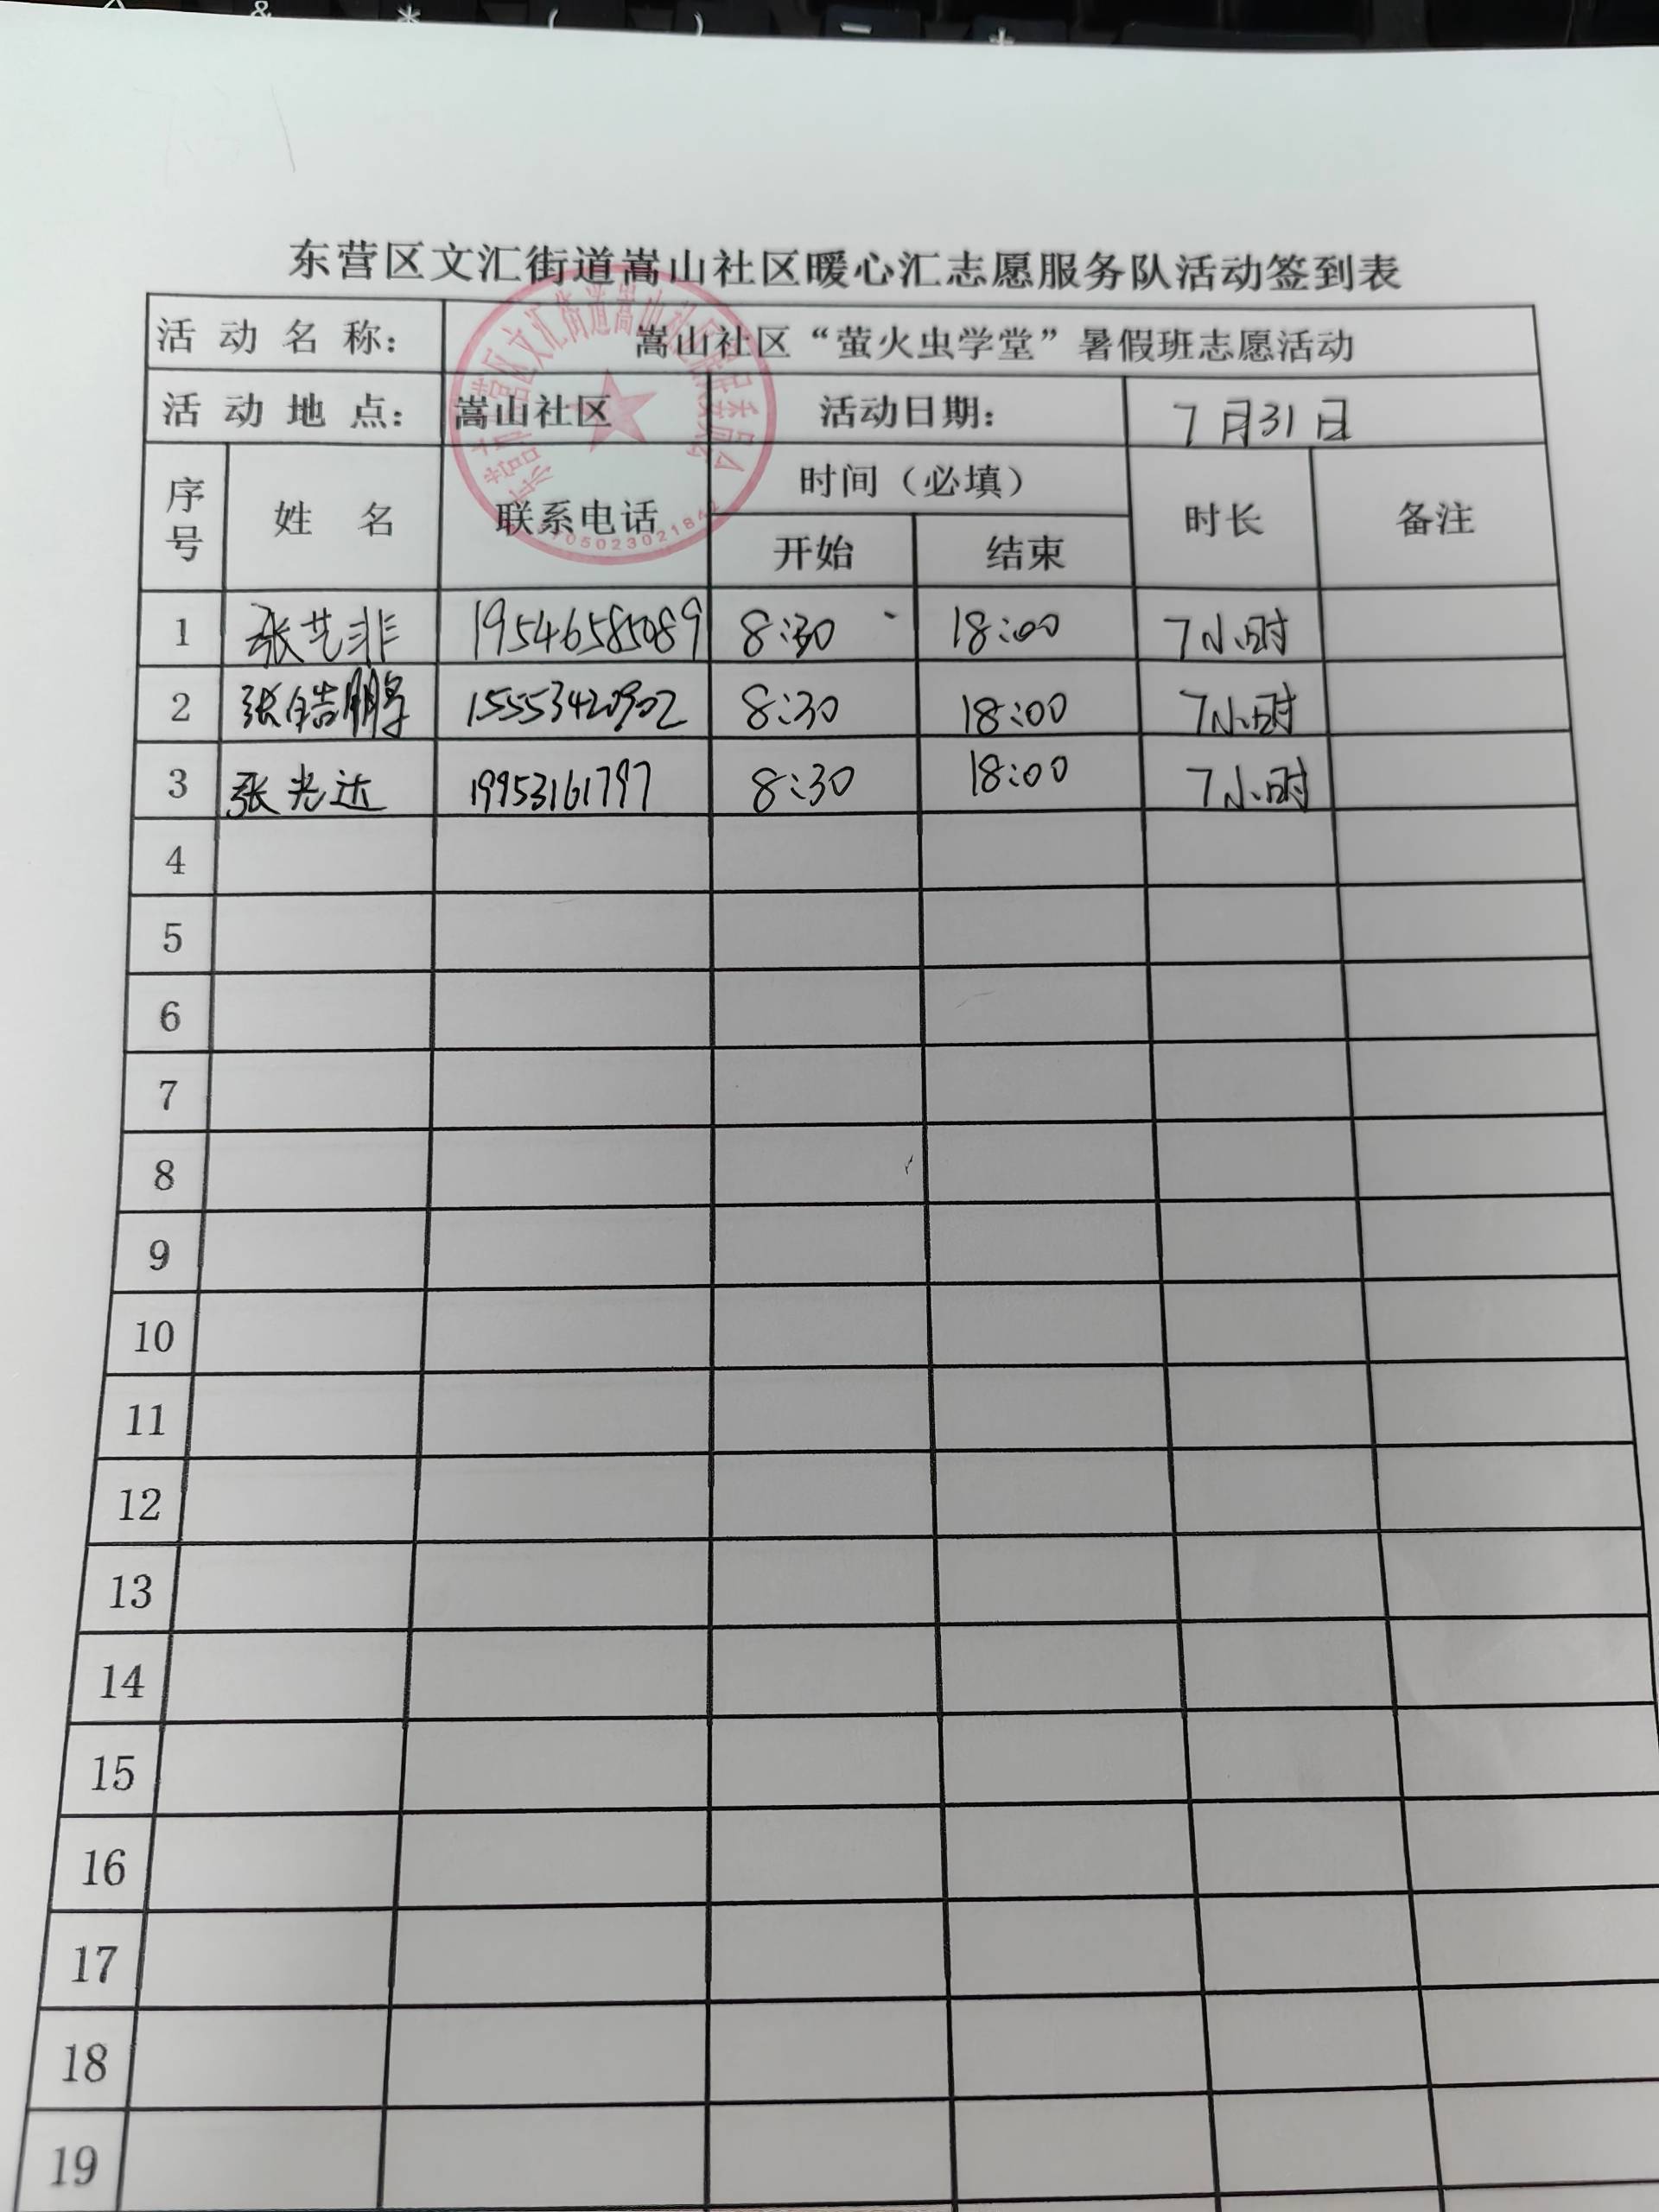 东营区文汇街道嵩山社区暖心汇志愿服务队活动签到表
活动名称： 嵩山社区“萤火虫学堂”暑假班志愿活动
活动地点： 嵩山社区 活动日期： 7月31日
序号 姓名 联系电话 时间（必填） 时长 备注
开始 结束
1 张艺非 19546585089 8:30 18:00 7小时
2 张皓鹏 15553420902 8:30 18:00 7小时
3 张光达 19953161797 8:30 18:00 7小时
4
5
6
7
8
9
10
11
12
13
14
15
16
17
18
19